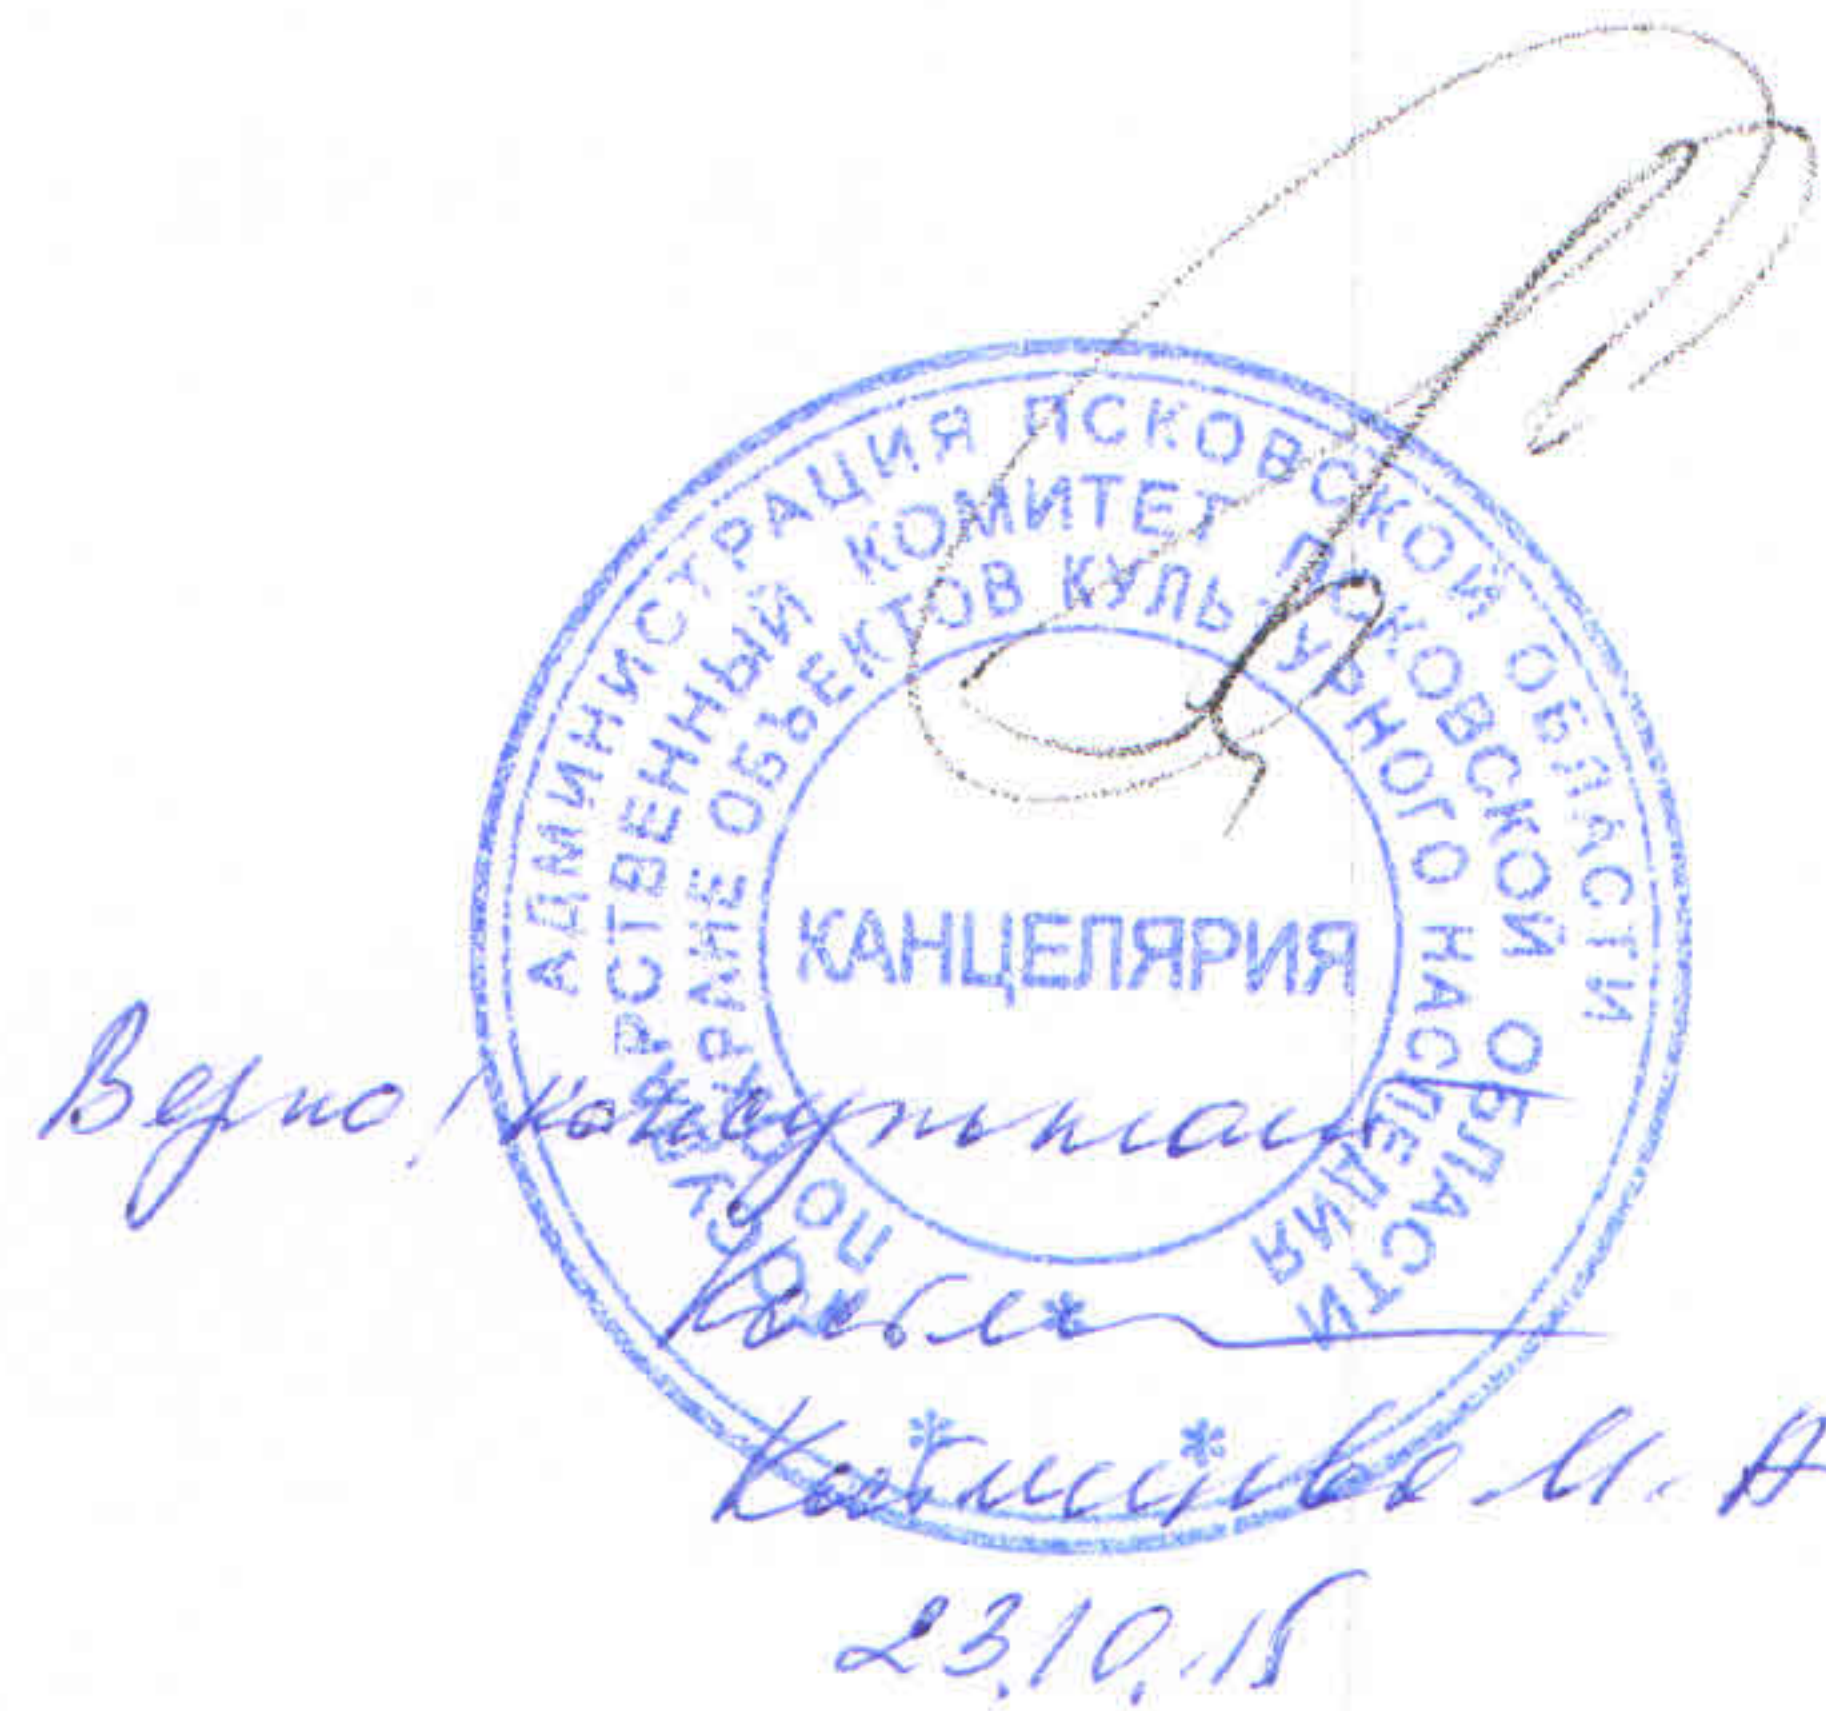 АДМИНИСТРАЦИЯ ПСКОВСКОЙ ОБЛАСТИ
ГОСУДАРСТВЕННЫЙ КОМИТЕТ ПСКОВСКОЙ ОБЛАСТИ
ПО ОХРАНЕ ОБЪЕКТОВ КУЛЬТУРНОГО НАСЛЕДИЯ
КАНЦЕЛЯРИЯ
Верно: консультант
М. А
23.10.15